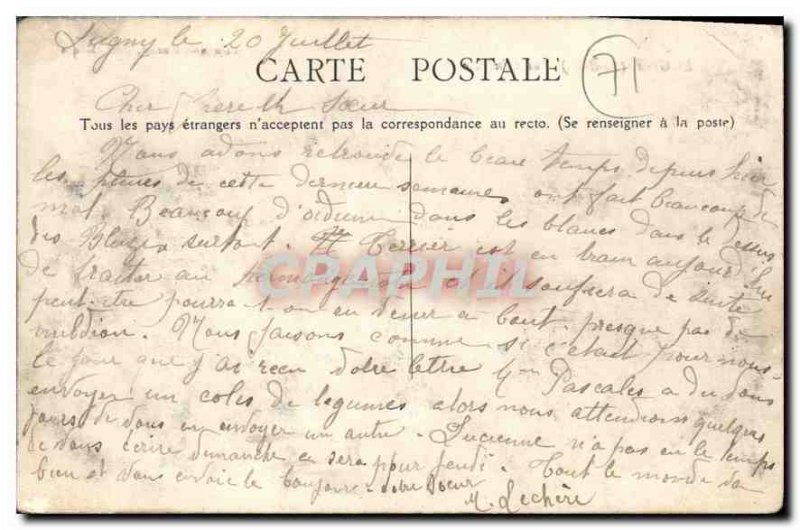 le 20 Juillet
CARTE POSTALE
71
Cher frere et sœur
Tous les pays étrangers n'acceptent pas la correspondance au recto. (Se renseigner à la poste)
Nous avons retrouvé le beau temps depuis hier
les pluies de cette derniere semaine ont fait beaucoup de
mal. Beaucoup d'oidium dans les blancs dans le dessus
des surtout. Mr Terrier est en train aujourd'hui
de traiter au il soufrera de suite
peut-etre pourra-t-on en venir a bout, presque pas de
mildiou. Nous faisons comme si c'etait pour nous-
le jour que j'ai recu votre lettre Pascales a du vous
envoyer un colis de legumes alors nous attendions quelques
jours de vous en envoyer un autre. Lucienne n'a pas eu le temps
de vous ecrire dimanche ce sera pour jeudi. Tout le monde va
bien et vous envoie le bonjour. votre soeur
M. Lechère
CPAPHIL